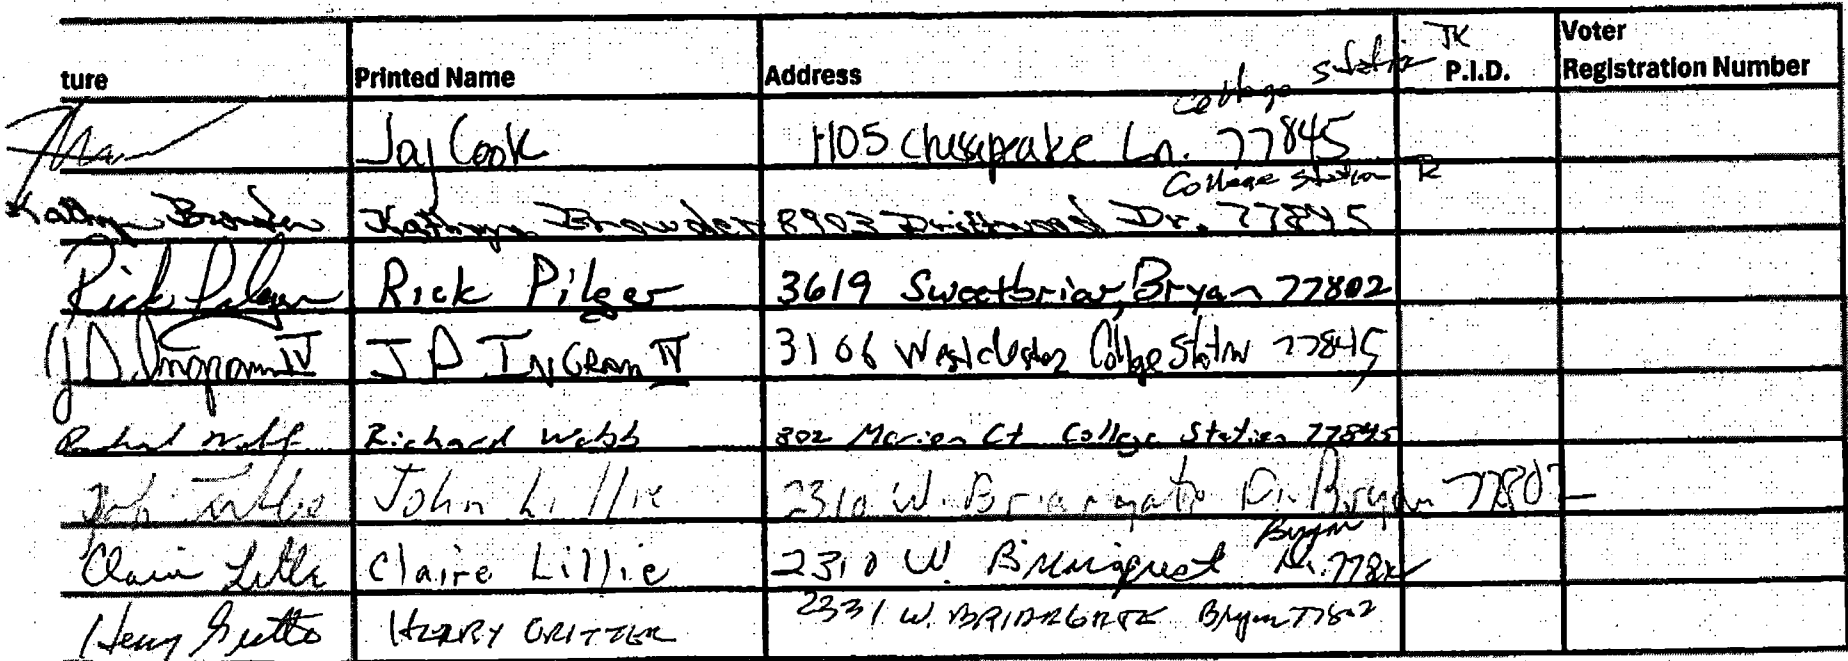 ture Printed Name Address P.I.D. Voter Registration Number
College Station
Jay Cook 1105 Chesapeake Ln. 77845
College Station
Kathryn Browder Kathryn Browder 8903 Driftwood Dr. 77845
Rick Pilger Rick Pilger 3619 Sweetbriar, Bryan 77802
JD Ingram IV J D INGRAM IV 3106 Westchester College Station 77845
Richard Webb Richard Webb 802 Marion Ct College Station 77845
John Lillie John Lillie 2310 W. Briargate Dr. Bryan 77802
Bryan
Claire Lillie Claire Lillie 2310 W. Dr. 77802
Henry HENRY GRITTER 2331 W. BRIARGATE Bryan 77802